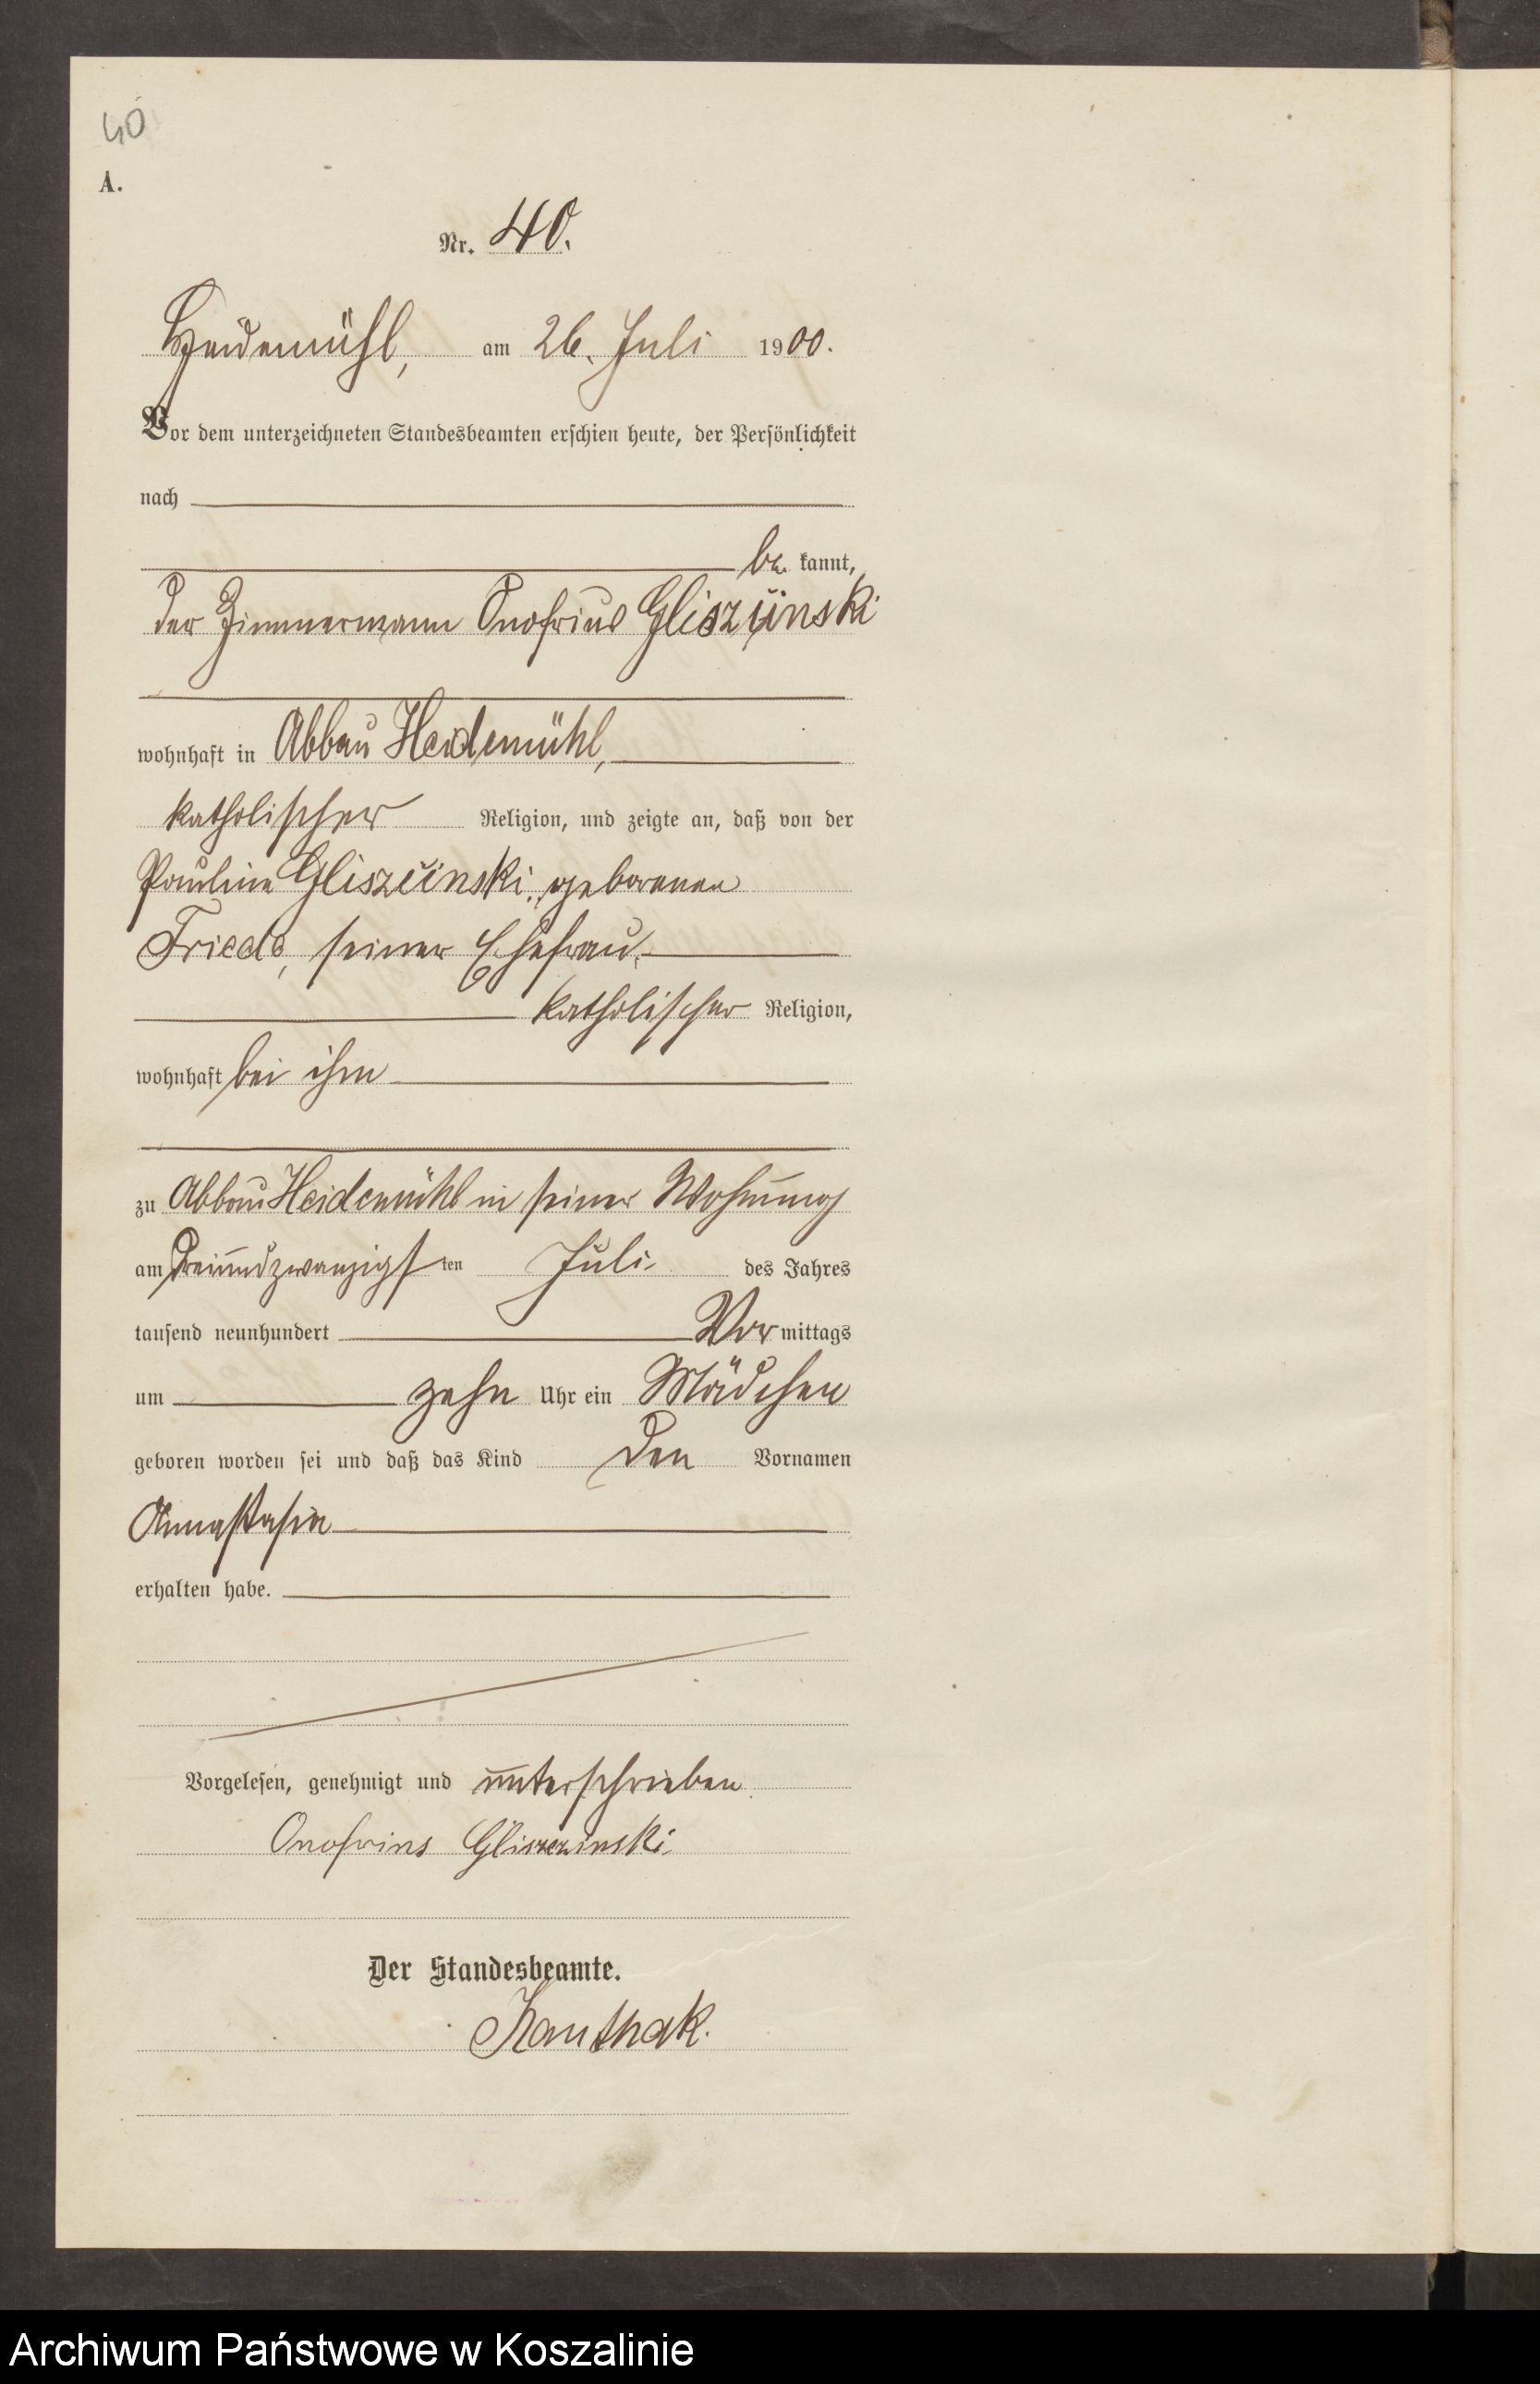 40
A.
Nr. 40.
Heidemühl, am 26. Juli 1900.
Vor dem unterzeichneten Standesbeamten erschien heute, der Persönlichkeit
nach
be kannt,
der Zimmermann Onofrius Gliszinski
wohnhaft in Abbau Heidemühl,
katholischer Religion, und zeigte an, daß von der
Pauline Gliszinski, geborenen
seiner Ehefrau,
katholischer Religion,
wohnhaft bei ihm
zu Abbau Heidemühl in seiner Wohnung
am dreiundzwanzigsten Juli des Jahres
tausend neunhundert Vormittags
um zehn Uhr ein Mädchen
geboren worden sei und daß das Kind den Vornamen
Annastasia
erhalten habe.
Vorgelesen, genehmigt und unterschrieben
Onofrius Gliszczinski
Der Standesbeamte.
Kauthak.
Archiwum Państwowe w Koszalinie